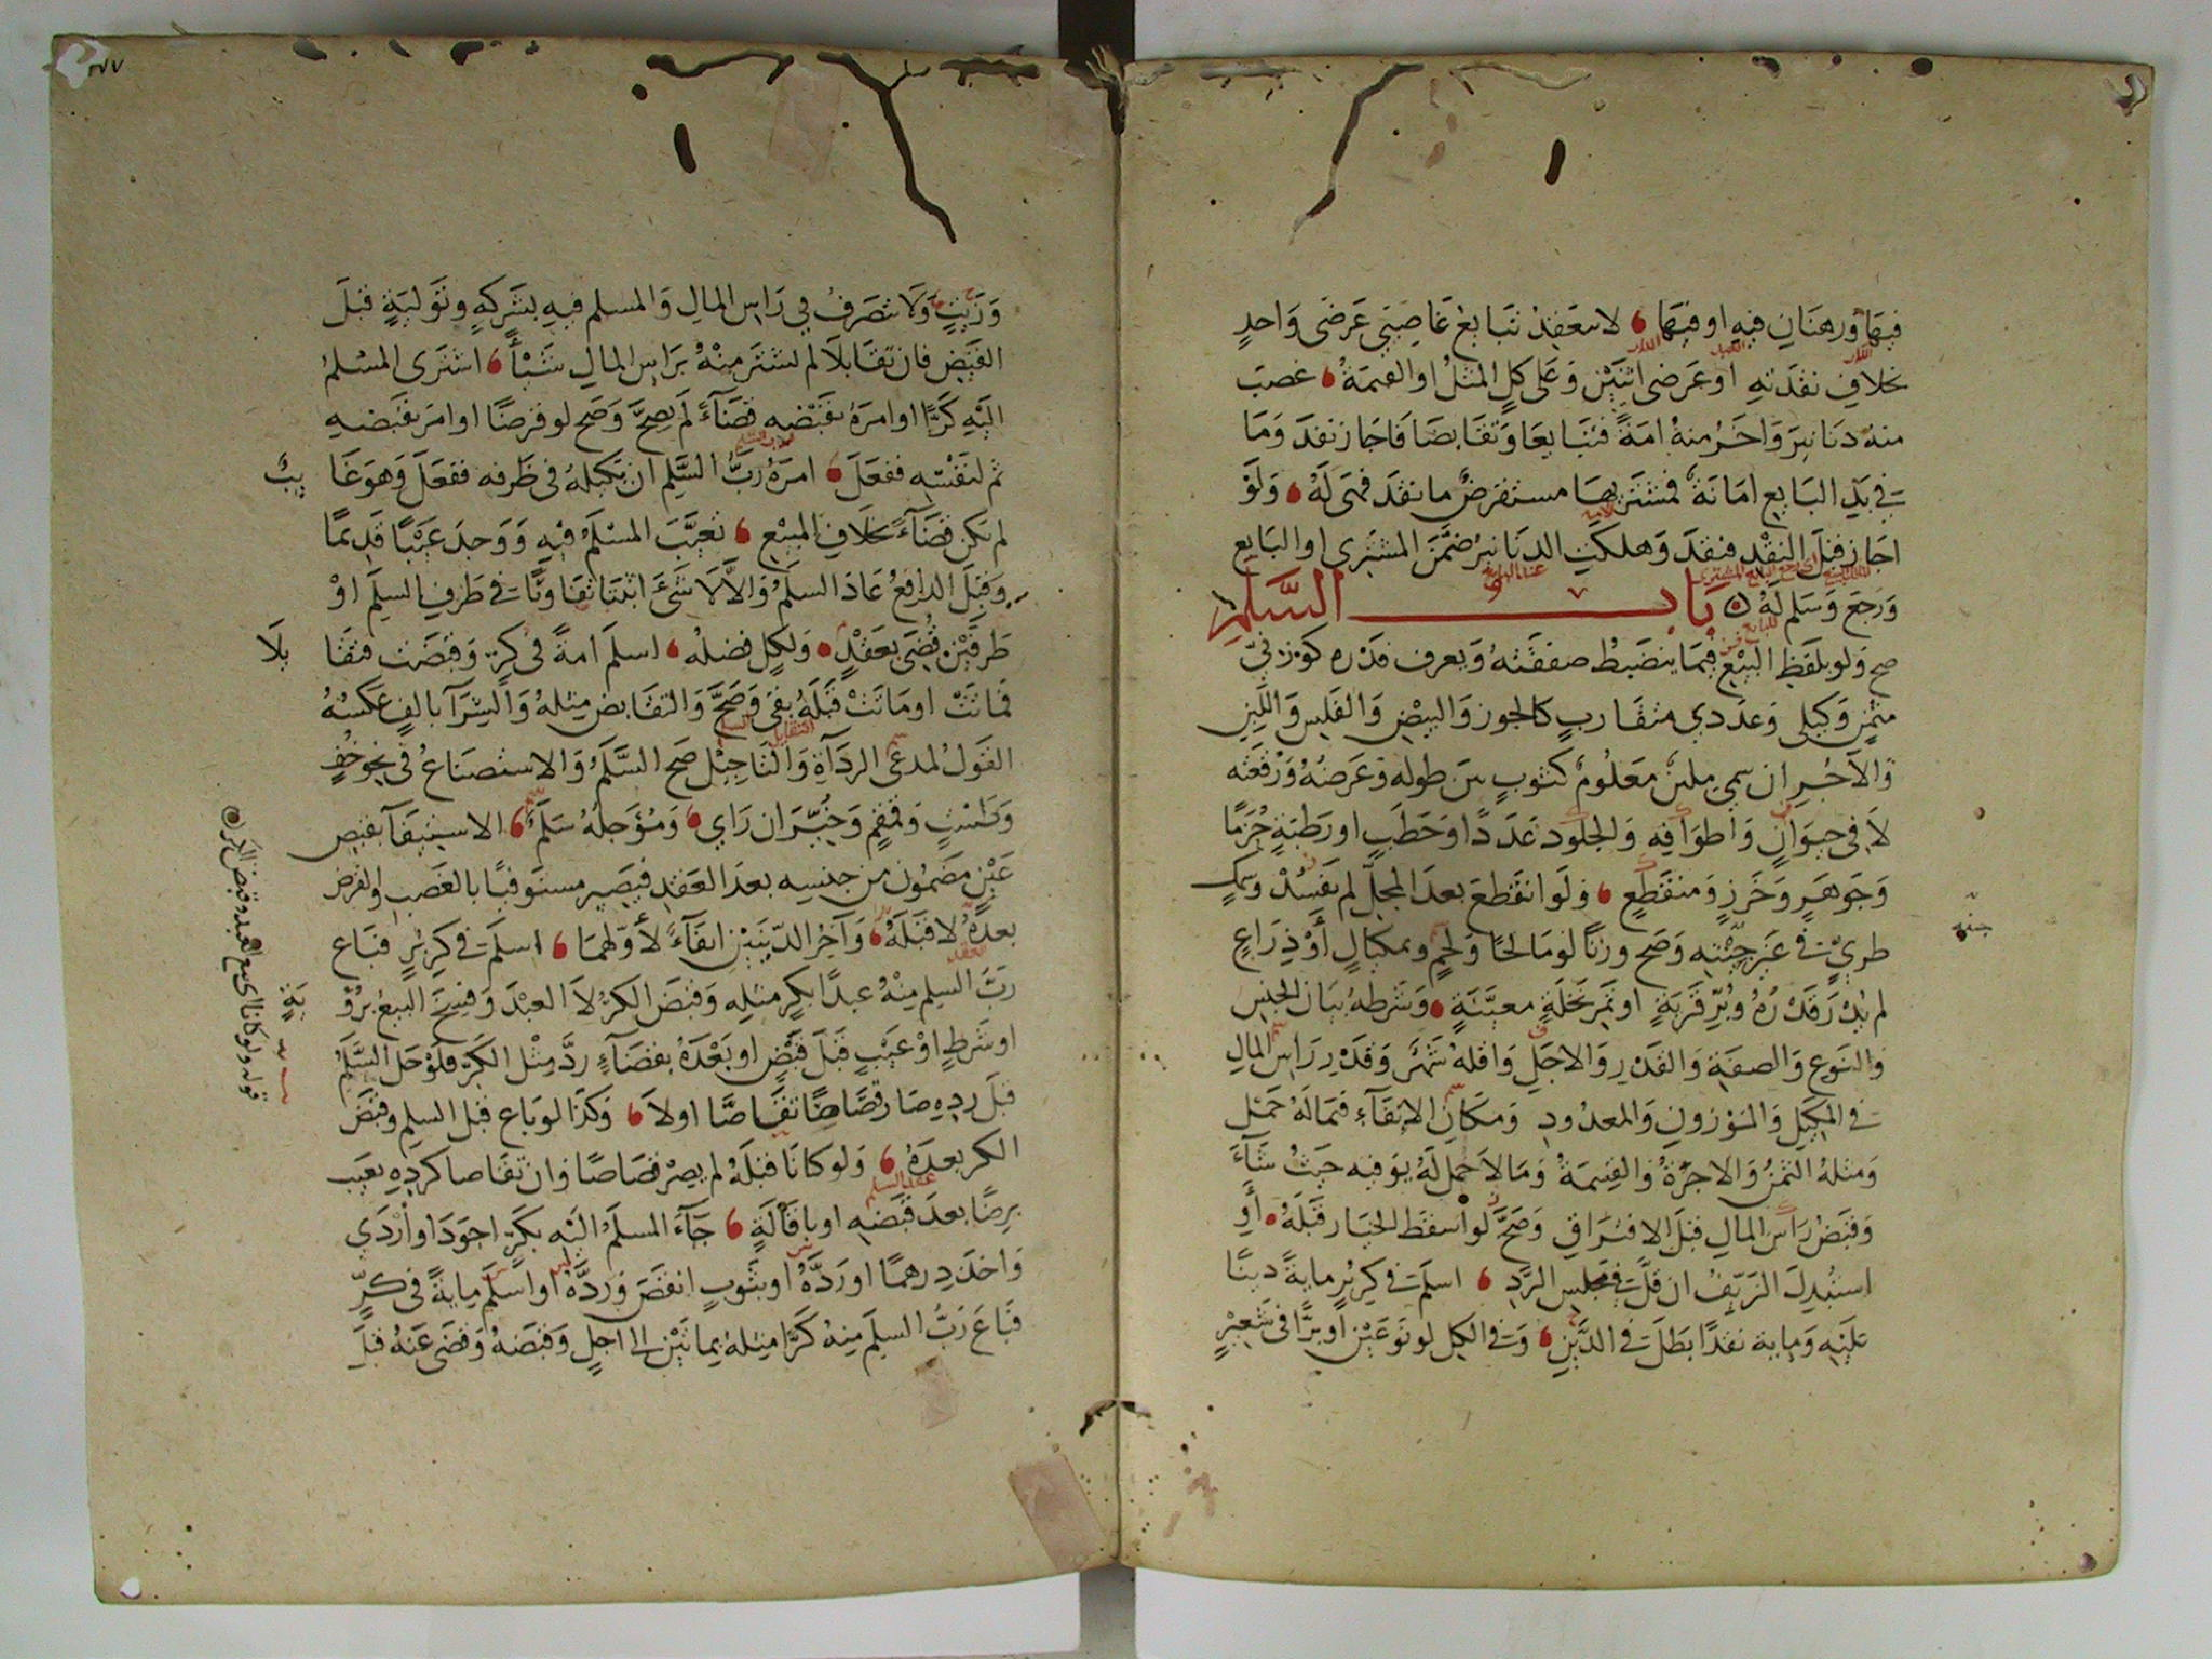 فيها ورهنان فيه او فيها لا ينعقد تبايع غاصبي عرضي واحد
بخلاف نقدته او عرضي اثنين وعلى كل المثل او القيمة غصب
منه دنانير واخر منه امة فتبايعا وتقابضا فاجاز نقد وما
في يد البايع امانة فمشتر بها مستقرض ما نقد فهى له ولو
اجاز قبل النقد فنقد وهلكت الدنانير ضمن المشترى او البايع
ورجع وسلم له باب السلم
صح ولو بلفظ البيع فيما ينضبط صفقته ويعرف قدره كوزني
مثمن وكيلي وعددي متقارب كالجوز والبيض والفلس واللبن
والاجر ان سمي ملبن معلوم كثوب بين طوله وعرضه ورقعته
لا في حيوان واطرافه والجلود عددا وحطب او رطبة حزما
وجوهر وخرز ومنقطع ولو انقطع بعد المحل لم يفسد وسمك
طري في غير حينه وصح وزنا لو مالحا ولحم ومكيال او ذراع
لم يدر قدره وبر قرية او تمر نخلة معينة وشرطه بيان الجنس
والنوع والصفة والقدر والاجل واقله شهر وقدر راس المال
في المكيل والموزون والمعدود ومكان الايفاء فيما له حمل
ومثله الثمن والاجرة والقسمة وما لا حمل له يوفيه حيث شاء
وقبض راس المال قبل الافتراق وصح لو اسقط الخيار قبله او
استبدل الزيف ان قلت في مجلس الرد اسلم في كر بر ماية دينا
عليه وماية نقدا بطل في الدين وفي الكل لو نوعين او برا في شعير
وزيت ولا تصرف في راس المال والمسلم فيه بشركه وتولية قبل
القبض فان تقابلا لم يشتر منه براس المال شيئا اشترى المسلم
اليه كرا او امره بقبضه قضاء لم يصح وصح لو قرضا او امر بقبضه
ثم لنفسه ففعل امره رب السلم ان يكيله في ظرفه ففعل وهو غا
يب
لم يكن قضاء بخلاف المبيع تعيب المسلم فيه ووجد عيبا قديما
وقبل الدافع عاد السلم والا لا شيء اثبتا تفاوتا في طرف السلم او
طرفين قضى بعقد ولكل فضله اسلم امة في كر وقبضت فتقا
يلا
فماتت او ماتت قبله بقى وصح والتقابض مثله والشرا بالف عكسه
القول لمدعى الرداة والتاجيل صح السلم والاستصناع في نحو خف
وطست وقمقم وخير ان راي ومؤجله سلم الاستيفاء بقبض
عين مضمون من جنسه بعد العقد فيصير مستوفيا بالغصب والقرض
بعده لا قبله واخر الدينين ايفاء لاولهما اسلم في كر بر فباع
رب السلم منه عبدا بكر مثله وقبض الكر لا العبد وفسخ البيع برؤ
ية
او شرط او عيب قبل قبض او بعده بقضاء رد مثل الكر فلو حل السلم
قبل رده صار قصاصا تقاصا اولا وكذا لو باع قبل السلم وقبض
الكر بعده ولو كانا قبله لم يصر قصاصا وان تقاصا كرده بعيب
برضا بعد قبضه او باقالة جاء المسلم اليه بكر اجود او اردي
واخذ درهما او رده او بثوب انقص ورده او اسلم ماية في كر
فباع رب السلم منه كرا مثله بمائتين الى اجل وقبضه وقضى عنه قبل
قوله ولو كانا اى بيع العبد وقبض الكر